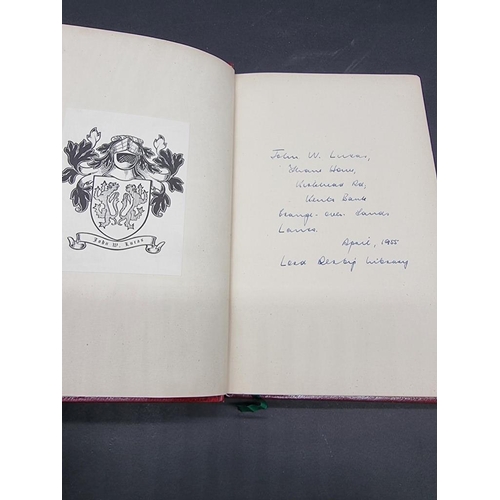 John W. Lucas
John W. Lucas,
Kirkhead Rd,
Kents Bank
Grange-over-Sands
Lancs.
April, 1955
Lord Derby's Library